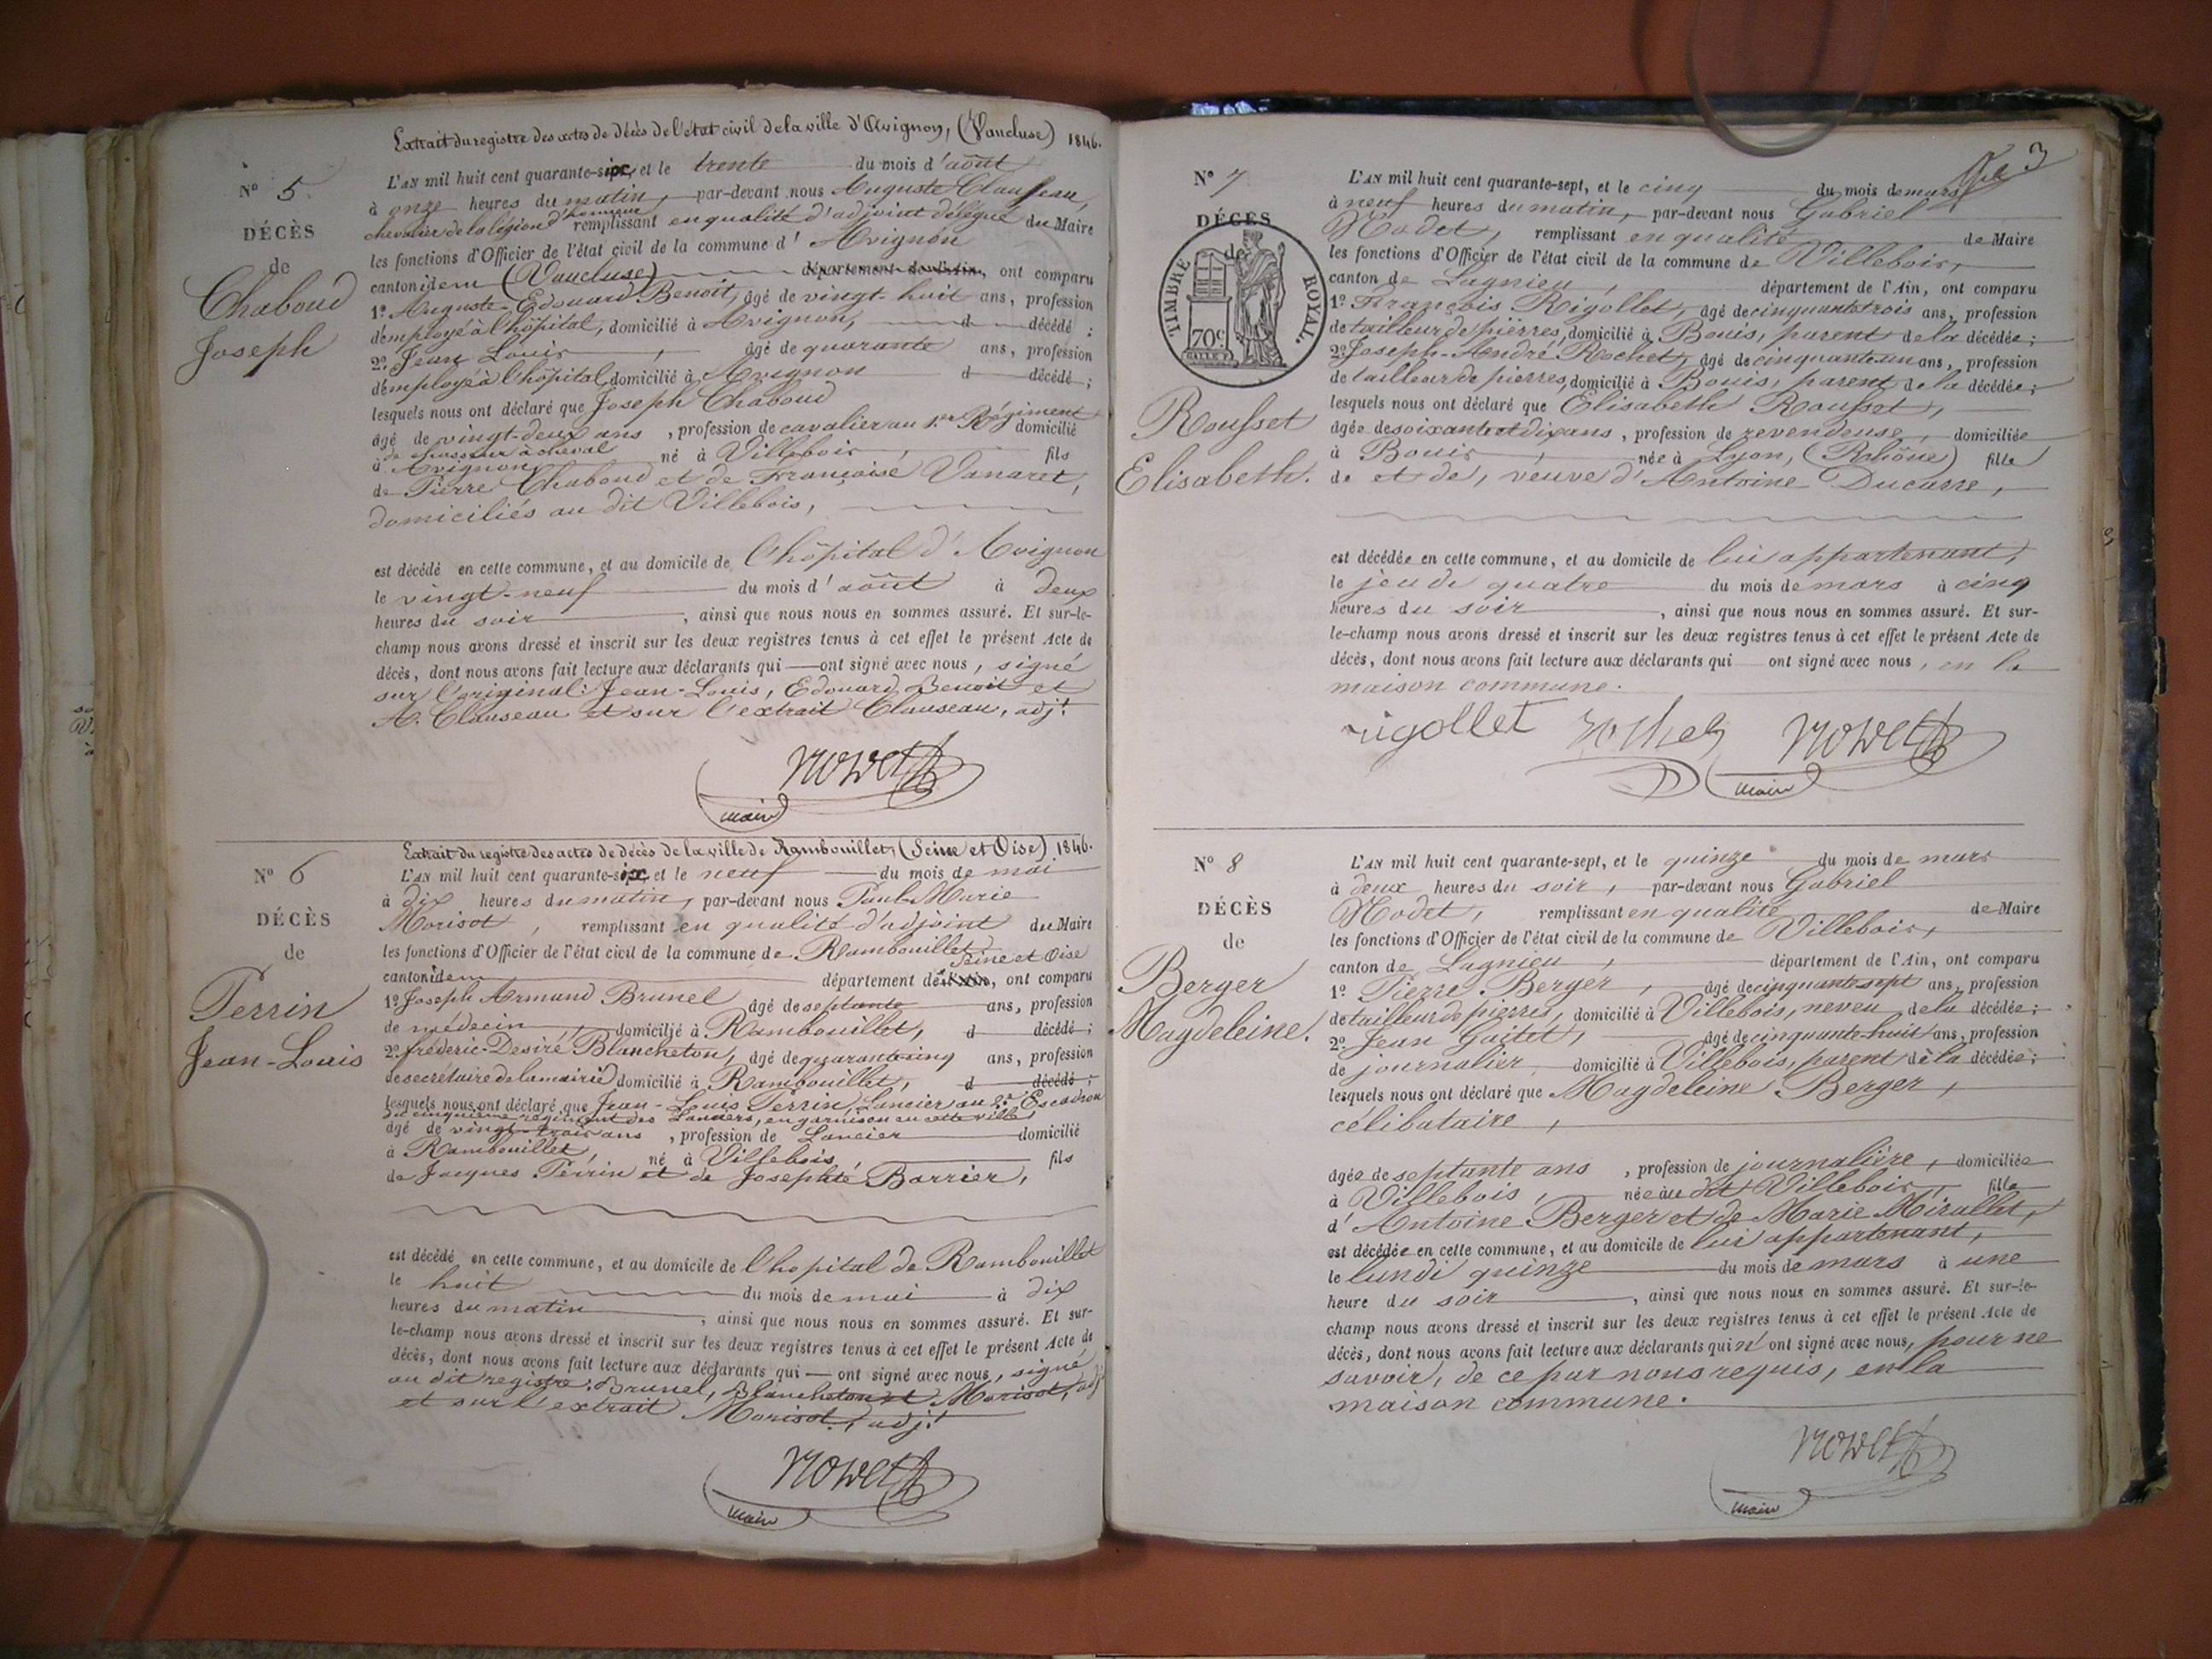 Extrait du registre des actes de décès de l'état civil de la ville d'Avignon, (Vaucluse) 1846.
N° 5
DÉCÈS
de
Chaboud
Joseph
L'AN mil huit cent quarante-six, et le trente du mois d'août
à onze heures du matin, par-devant nous Auguste Clauseau,
chevalier de la légion d'honneur remplissant en qualité d'adjoint délégué du Maire
les fonctions d'Officier de l'état civil de la commune d'Avignon
canton idem (Vaucluse) département de l'Ain, ont comparu
1° Auguste-Edouard Benoit, âgé de vingt-huit ans, profession
d'employé à l'hôpital, domicilié à Avignon, d décédé ;
2° Jean Louis, âgé de quarante ans, profession
d'employé à l'hôpital, domicilié à Avignon d décédé ;
lesquels nous ont déclaré que Joseph Chaboud
âgé de vingt-deux ans, profession de cavalier au 1er Régiment domicilié
de chasseur à cheval
à Avignon né à Villebois, fils
de Pierre Chaboud et de Françoise Vanaret,
domiciliés au dit Villebois,
est décédé en cette commune, et au domicile de l'hôpital d'Avignon
le vingt-neuf du mois d'août à deux
heures du soir, ainsi que nous nous en sommes assuré. Et sur-le-
champ nous avons dressé et inscrit sur les deux registres tenus à cet effet le présent Acte de
décès, dont nous avons fait lecture aux déclarants qui ont signé avec nous, signé
sur l'original : Jean-Louis, Edouard Benoit et
A. Clauseau et sur l'extrait Clauseau, adjt
maire
Extrait du registre des actes de décès de la ville de Rambouillet, (Seine et Oise) 1846.
N° 6
DÉCÈS
de
Perrin
Jean-Louis
L'AN mil huit cent quarante-six, et le neuf du mois de mai
à dix heures du matin, par-devant nous Paul-Marie
Morisot, remplissant en qualité d'adjoint du Maire
les fonctions d'Officier de l'état civil de la commune de Rambouillet
Seine et Oise
canton idem département de l'Ain, ont comparu
1° Joseph Armand Brunel âgé de septante ans, profession
de médecin, domicilié à Rambouillet, d décédé ;
2° fréderic-Desiré Blancheton, âgé de quarante cinq ans, profession
de secrétaire de la mairie domicilié à Rambouillet, d décédé ;
lesquels nous ont déclaré que Jean-Louis Perrin, Lancier au 2e Escadron
du cinquième régiment des Lanciers, en garnison en cette ville
âgé de vingt-trois ans, profession de Lancier domicilié
à Rambouillet, né à Villebois fils
de Jacques Perrin et de Josephté Barrier,
est décédé en cette commune, et au domicile de l'hopital de Rambouillet
le huit du mois de mai à dix
heures du matin, ainsi que nous nous en sommes assuré. Et sur-
le-champ nous avons dressé et inscrit sur les deux registres tenus à cet effet le présent Acte de
décès, dont nous avons fait lecture aux déclarants qui ont signé avec nous, signé
au dit registre : Brunel, Blancheton et Morisot, adjt
et sur l'extrait Morisot, adjt
maire
3
N° 7
DÉCÈS
de
TIMBRE ROYAL.
70c
Rousset
Elisabeth.
L'AN mil huit cent quarante-sept, et le cinq du mois de mars
à neuf heures du matin, par-devant nous Gabriel
Nodet, remplissant en qualité de Maire
les fonctions d'Officier de l'état civil de la commune de Villebois,
canton de Lagnieu, département de l'Ain, ont comparu
1° François Rigollet, âgé de cinquante trois ans, profession
de tailleur de pierres, domicilié à Bouis, parent de la décédée ;
2° Joseph-André Rochet, âgé de cinquante un ans, profession
de tailleur de pierres, domicilié à Bouis, parent de la décédée ;
lesquels nous ont déclaré que Elisabeth Rousset,
âgée de soixante et dix ans, profession de revendeuse, domiciliée
à Bouis, née à Lyon, (Rhône) fille
de et de, veuve d'Antoine Ducarre,
est décédée en cette commune, et au domicile de lui appartenant,
le jeudi quatre du mois de mars à cinq
heures du soir, ainsi que nous nous en sommes assuré. Et sur-
le-champ nous avons dressé et inscrit sur les deux registres tenus à cet effet le présent Acte de
décès, dont nous avons fait lecture aux déclarants qui ont signé avec nous, en la
maison commune.
rigollet
maire
N° 8
DÉCÈS
de
Berger
Magdeleine.
L'AN mil huit cent quarante-sept, et le quinze du mois de mars
à deux heures du soir, par-devant nous Gabriel
Nodet, remplissant en qualité de Maire
les fonctions d'Officier de l'état civil de la commune de Villebois,
canton de Lagnieu, département de l'Ain, ont comparu
1° Pierre Berger, âgé de cinquante sept ans, profession
de tailleur de pierres, domicilié à Villebois, neveu de la décédée ;
2° Jean Gaitet, âgé de cinquante-huit ans, profession
de journalier, domicilié à Villebois, parent de la décédée ;
lesquels nous ont déclaré que Magdeleine Berger,
célibataire,
âgée de septante ans, profession de journalière, domiciliée
à Villebois, née au dit Villebois, fille
d'Antoine Berger et de Marie Mirallet,
est décédée en cette commune, et au domicile de lui appartenant,
le lundi quinze du mois de mars à une
heure du soir, ainsi que nous nous en sommes assuré. Et sur-le-
champ nous avons dressé et inscrit sur les deux registres tenus à cet effet le présent Acte de
décès, dont nous avons fait lecture aux déclarants qui n'ont signé avec nous, pour ne
savoir, de ce par nous requis, en la
maison commune.
maire